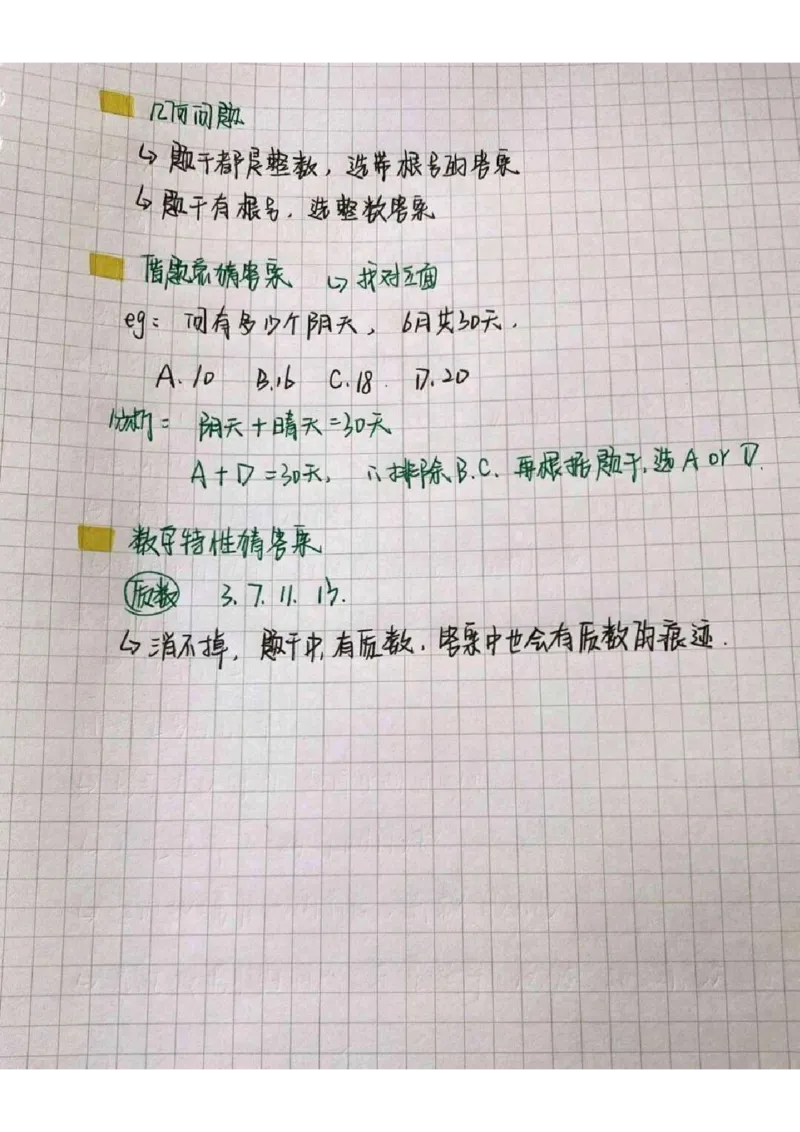 几何问题
↳ 题干都是整数，选带根号的答案
↳ 题干有根号，选整数答案
借题意猜答案 ↳ 找对立面
eg: 问有多少个阴天，6月共30天.
A.10 B.16 C.18. D.20
分析: 阴天+晴天=30天
A+D=30天, ∴排除B.C. 再根据题干,选A or D.
数字特性猜答案
质数 3.7.11.13.
↳ 消不掉，题干中有质数，答案中也会有质数的痕迹.